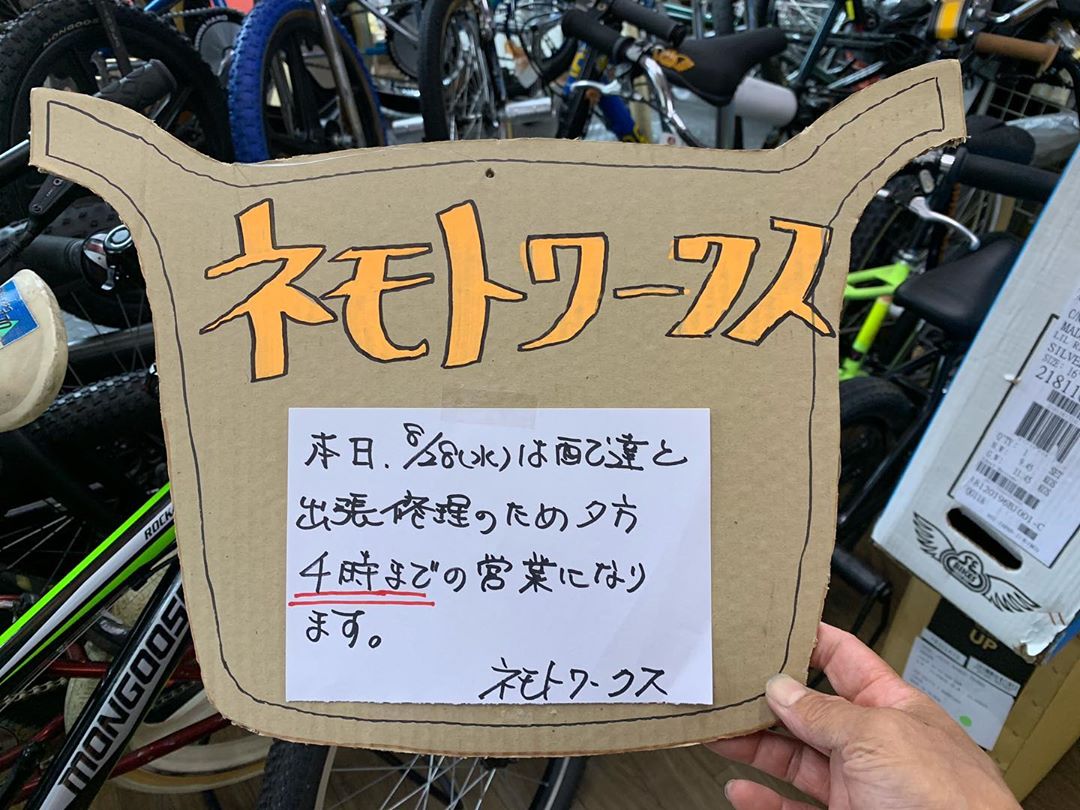 ネモトワークス
本日、8/28(水)は配達と
出張修理のため夕方
4時までの営業になり
ます。
ネモトワークス
MONGOOSE
ROCK
MONGOOS
SILVE
SIZE: 16
21811
UP